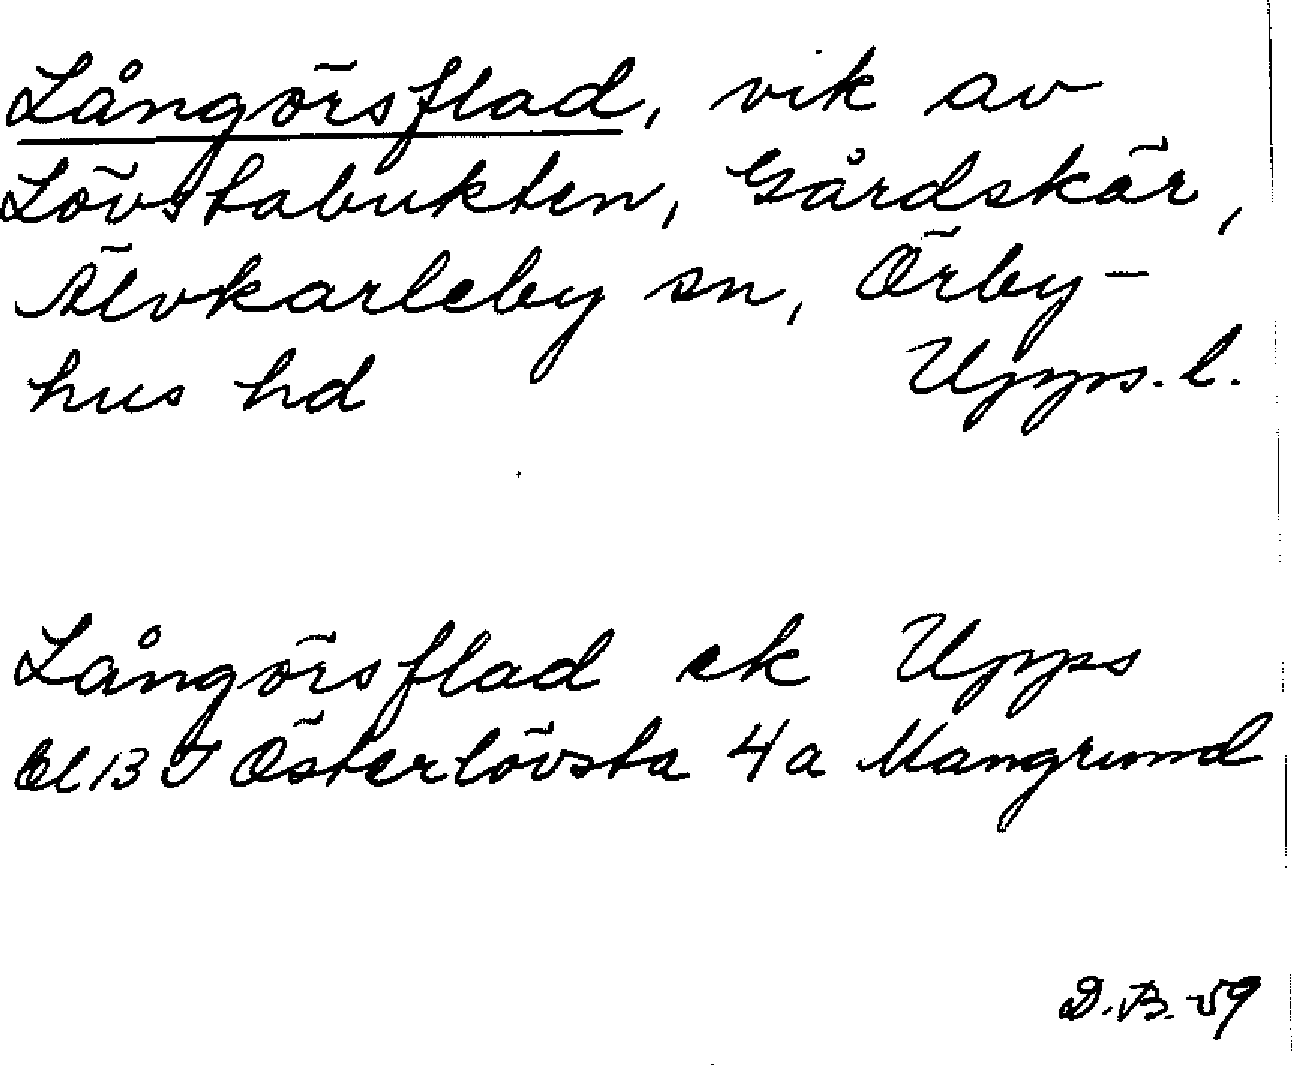 Långörsflad, vik av
Lövstabukten, Gårdskär,
Älvkarleby sn, Örby-
hus hd Upps. l.
Långörsflad ek Upps
Österlövsta 4a Mangrund
D.B. 59